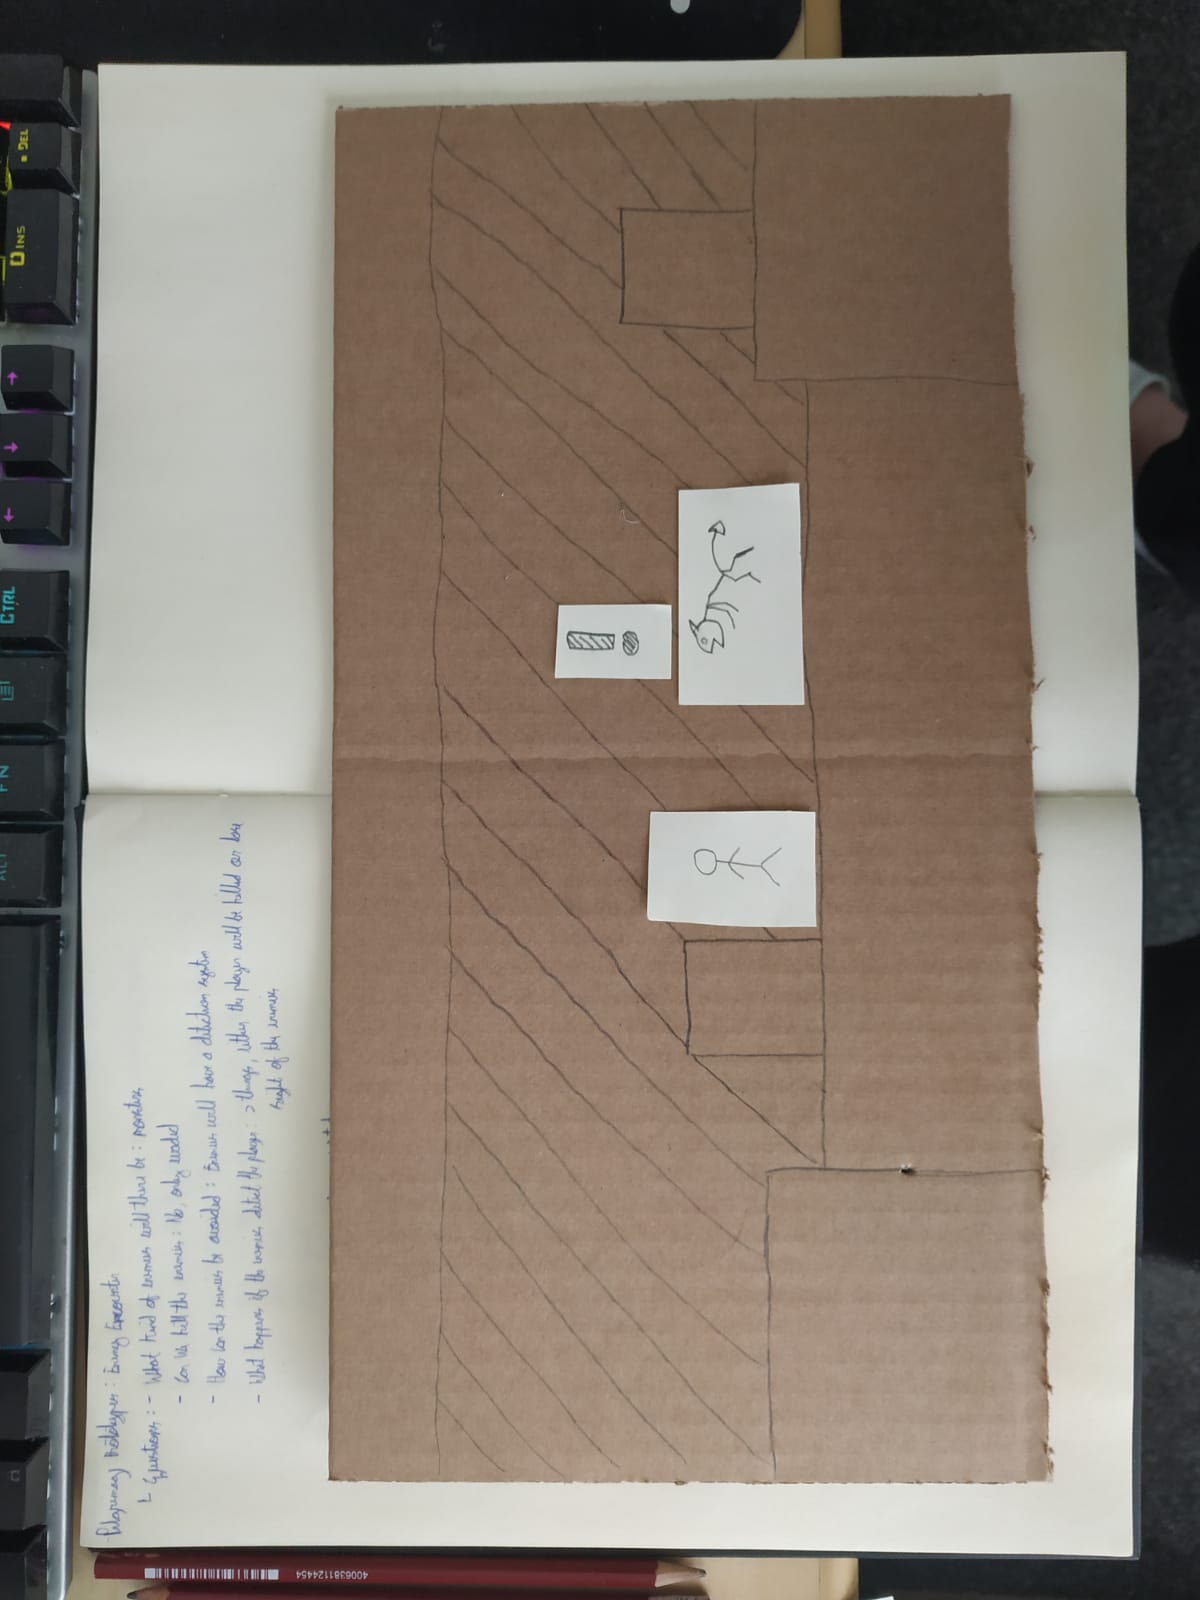 ALT
FN
CTRL
←
↓
→
INS
DEL
C
Prototypes : Enemy Encounter
Questions : - What kind of enemies will there be : monsters
- Can we kill the enemies : No, only evaded
- How can the enemies be avoided : Enemies will have a detection system
- What happens if the enemies detect the player : 2 things, either the player will be killed or lose
sight of the enemies
4006381124454
!